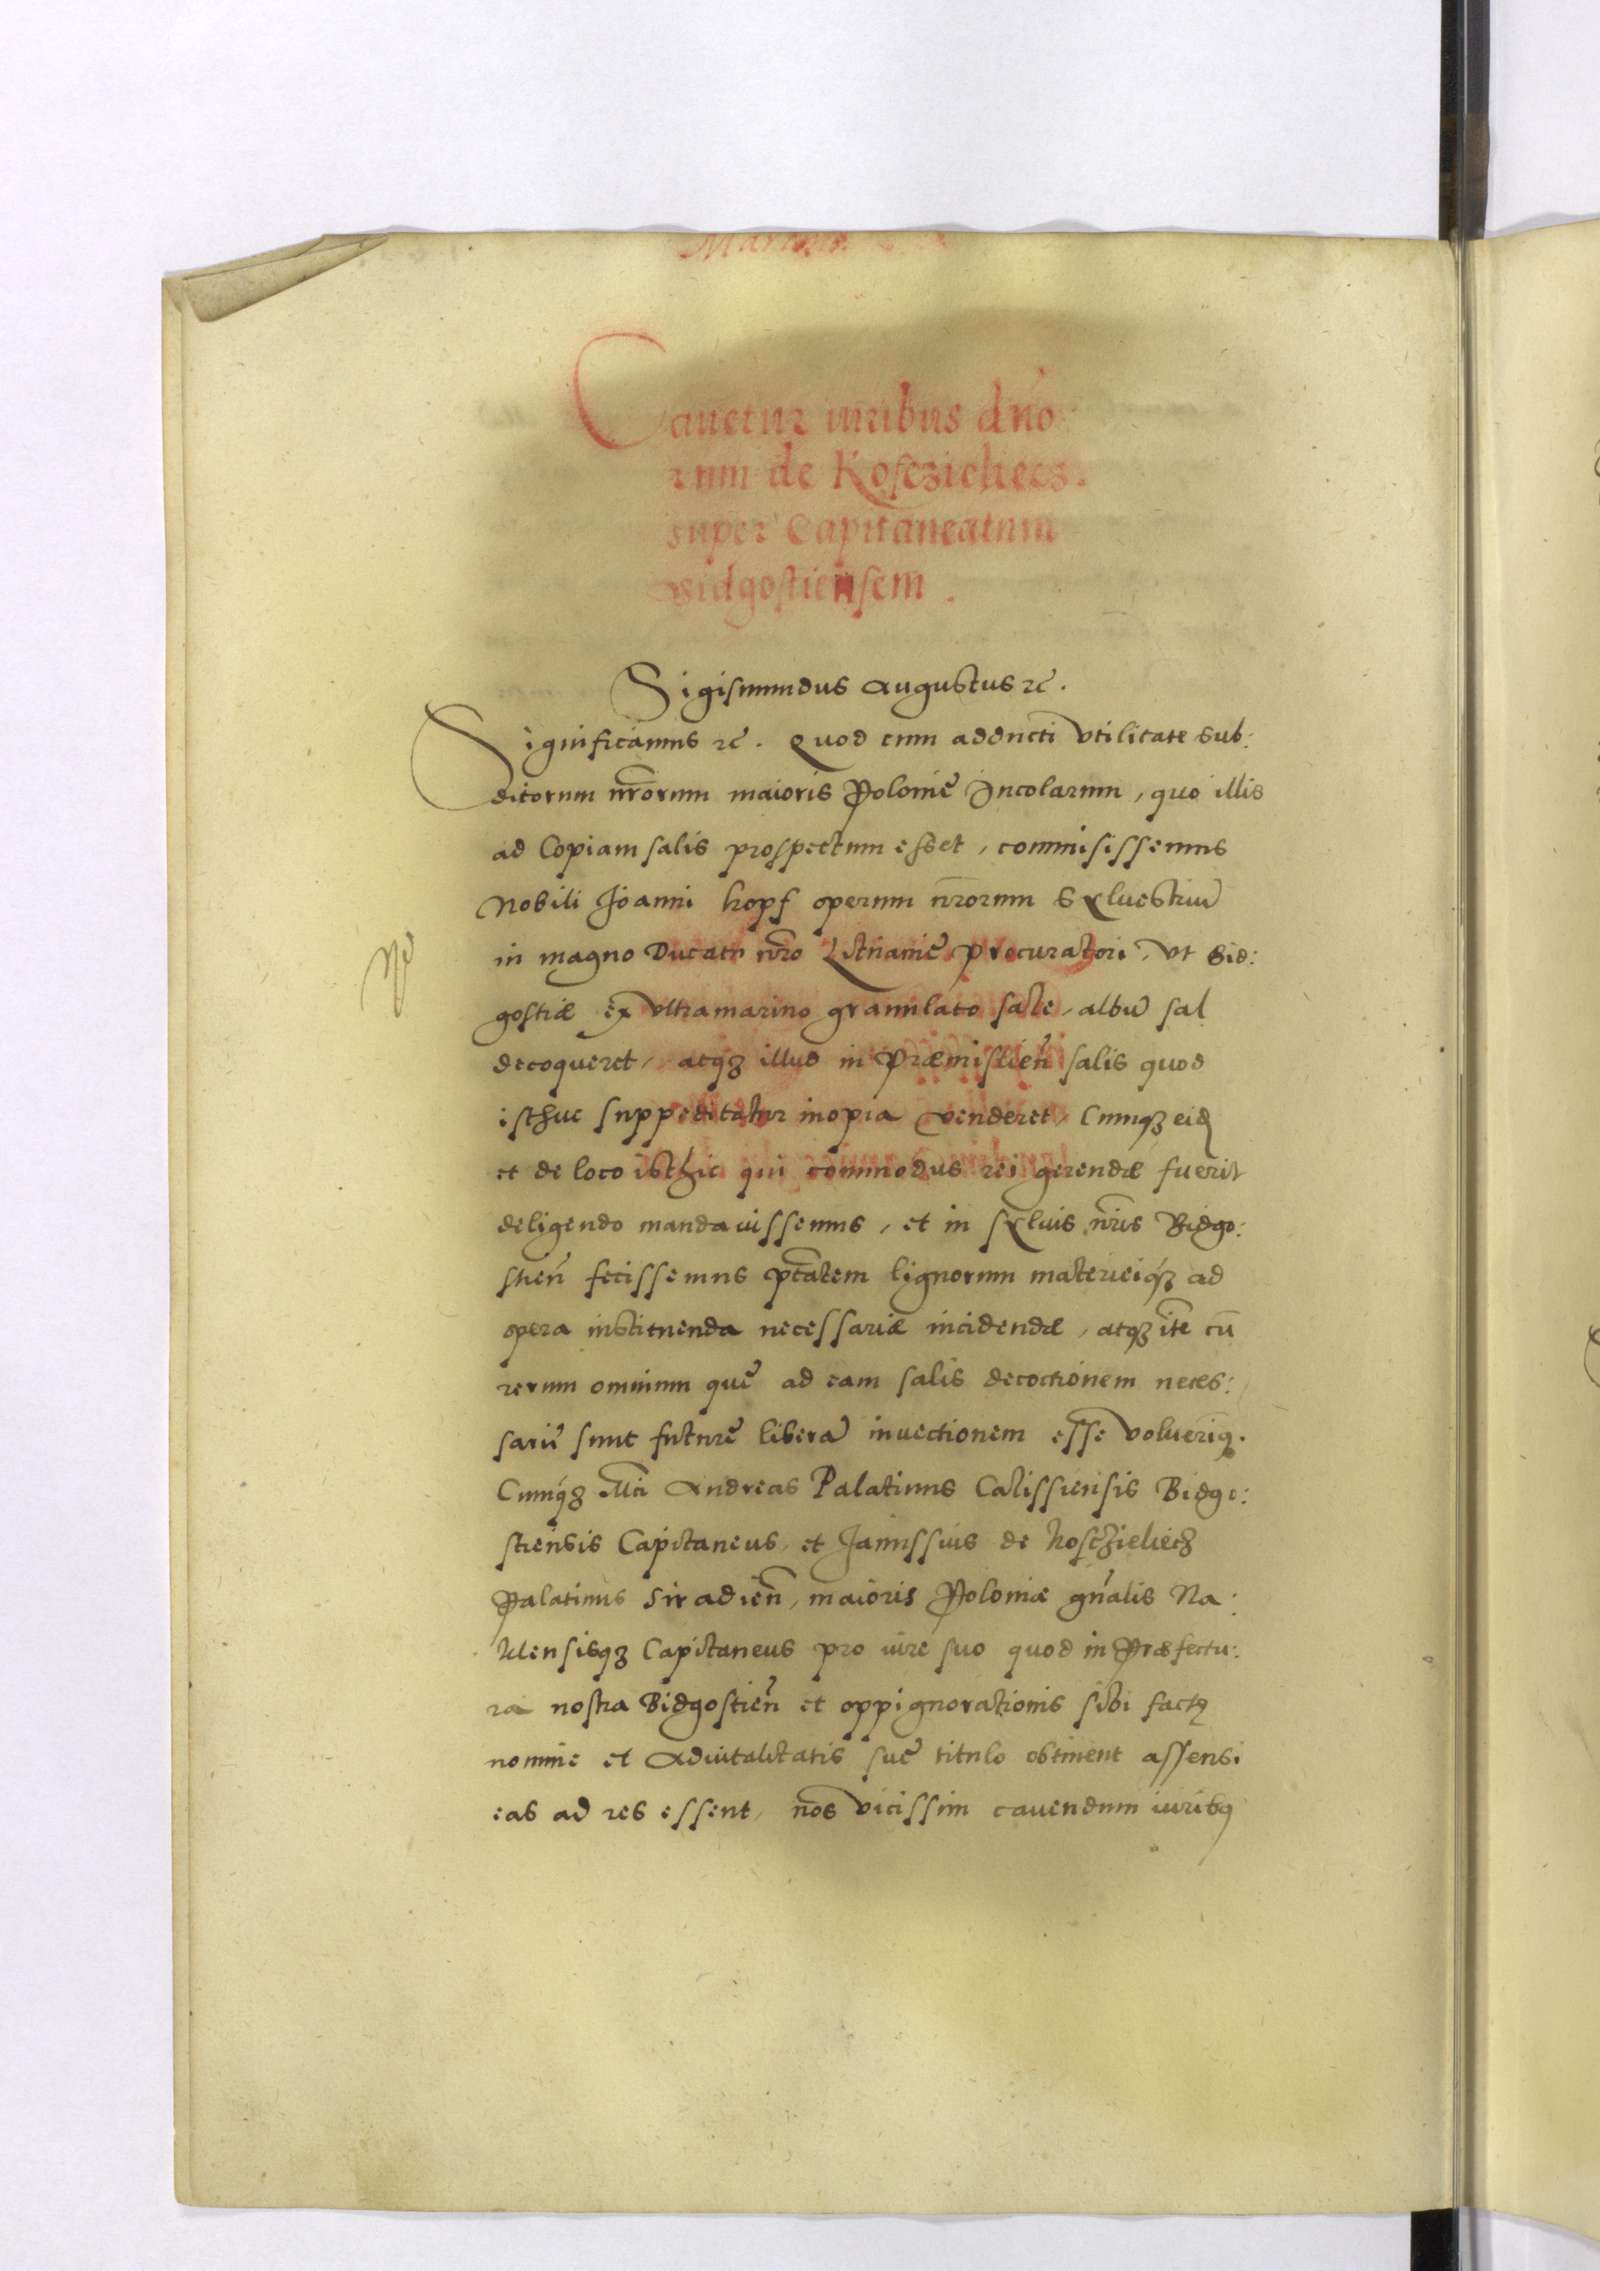 Cavetur iuribus dno
rum de Koscziehecz.
super Capitaneatum
Bidgostiensem.
Sigismundus Augustus rc̄.
Significamus rc̄. Quod cum adducti vtilitate sub:
ditorum nr̄orum maioris Polonię Incolarum, quo illis
ad Copiam salis prospectum esset, commisissemus
Nobili Joanni hopf operum nr̄orum Syluestriū
in magno Ducatu nr̄o Lituanię procuratori, vt Bid:
gostiæ ex vltramarino granulato sale, albū sal
decoqueret, atqꝫ illud in Præmislien̄ salis quod
isthuc suppeditatur inopia venderet, Cumqꝫ eid
et de loco isthic qui commodus rei gerendæ fuerit
deligendo mandauissemus, et in syluis nr̄is Bidgo:
stien̄ fecissemus ptātem lignorum materieiqꝫ ad
opera instituenda necessariæ incidendæ, atqꝫ itē cū
rerum omnium quę ad eam salis decoctionem neces:
sarię sunt futurę liberā inuectionem esse voluerimꝰ.
Cumqꝫ Mci Andreas Palatinus Calissiensis Bidgo:
stiensis Capitaneus, et Janussius de Kosczieliecz
Palatinus Siradien̄, maioris Poloniæ gn̄alis Na:
klensisqꝫ Capitaneus pro iure suo quod in Præfectu:
ra nostra Bidgostien̄ et oppignorationis sibi factę
nomine et aduitalitatis suę titulo obtinent assensi
eas ad res essent, nos vicissim cauendum iuribꝰ